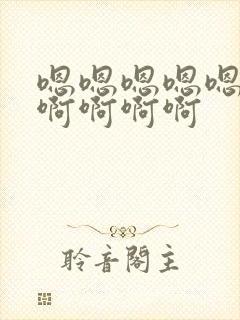 嗯嗯嗯嗯嗯
啊啊啊啊
聆音閣主